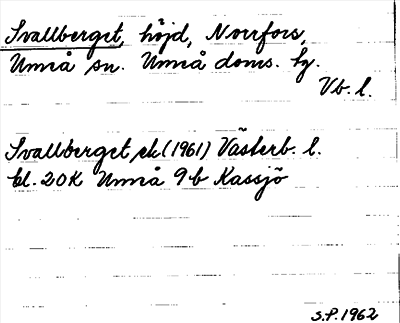 Svallberget, höjd, Norrfors,
Umeå sn. Umeå doms. tg.
Vb. l.
Svallberget, ek (1961) Västerb. l.
bl. 20K Umeå 9b Kassjö
S.P. 1962